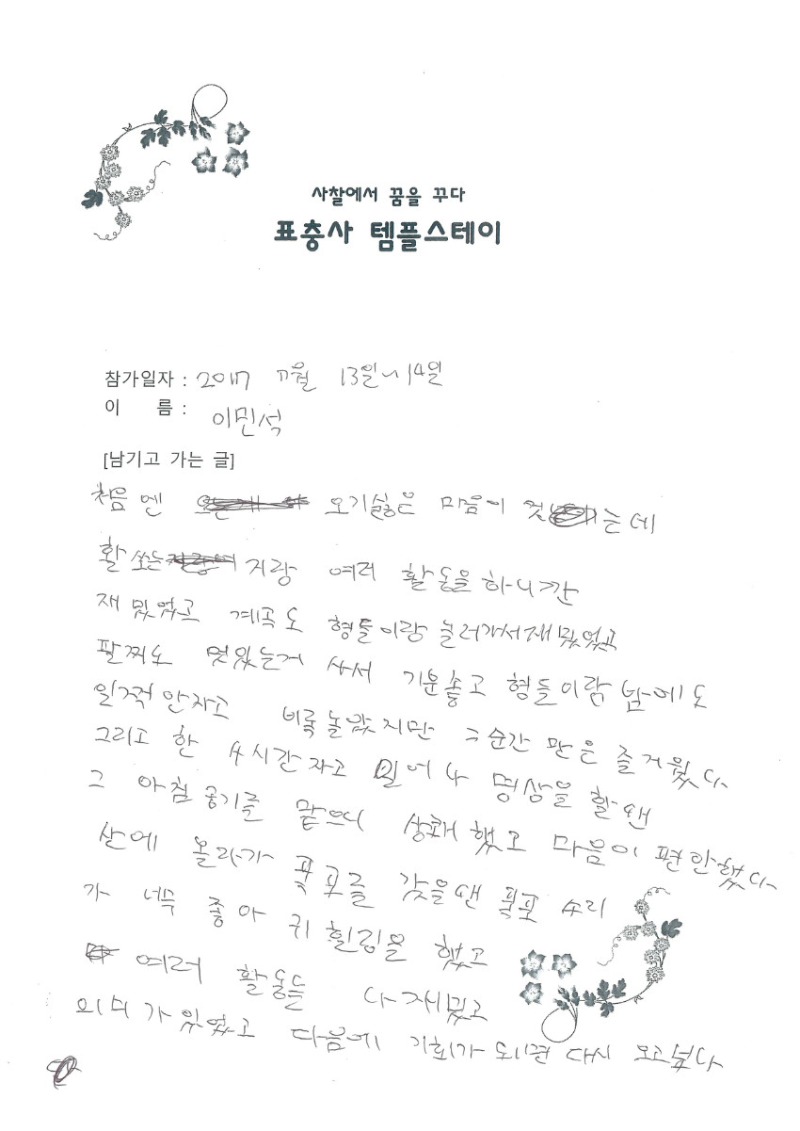 사찰에서 꿈을 꾸다
표충사 템플스테이
참가일자 : 2017 7월 13일~14일
이 름 : 이민석
[남기고 가는 글]
처음엔 오기싫은 마음이 는데
활쏘는 지랑 여러 활동을하니깐
재밌었고 계곡도 형들이랑 놀러가서재밌었고
팔찌도 멋있는거 사서 기분좋고 형들이람 밤에도
일찍안자고 비록놀았지만 그순간 만은 즐거웠다
그리고 한 4시간자고 일어나 명상을 할땐
그 아침공기를 맡으니 상쾌했고 마음이 편안했다
산에 올라가 폭포를 갔을땐 폭포 소리
가 너무 좋아 귀 힐링을 했고
여러 활동들 다재밌고
의미가있었고 다음에 기회가 되면 다시 오고싶다